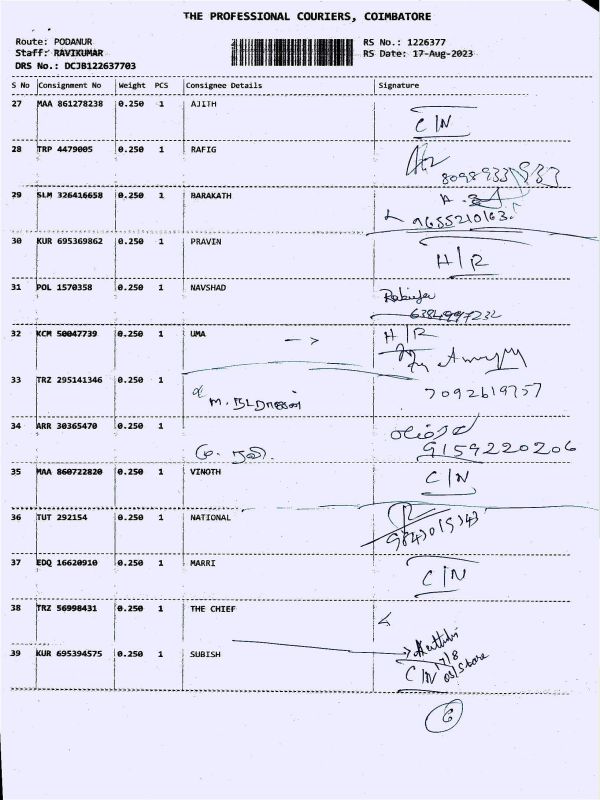 THE PROFESSIONAL COURIERS, COIMBATORE
Route: PODANUR
RS No.: 1226377
Staff: RAVIKUMAR
RS Date: 17-Aug-2023
DRS No.: DCJB122637703
S No Consignment No Weight PCS Consignee Details Signature
27 MAA 861278238 0.250 1 AJITH
C/N
28 TRP 4479005 0.250 1 RAFIG
8098933533
29 SLM 326416658 0.250 1 BARAKATH
9655210163
30 KUR 695369862 0.250 1 PRAVIN
H/R
31 POL 1570358 0.250 1 NAVSHAD
32 KCM 50047739 0.250 1 UMA
H/R
33 TRZ 295141346 0.250 1
7092619757
34 ARR 30365470 0.250 1
9159220206
35 MAA 860722820 0.250 1 VINOTH
C/N
36 TUT 292154 0.250 1 NATIONAL
37 EDQ 16620910 0.250 1 MARRI
C/N
38 TRZ 56998431 0.250 1 THE CHIEF
39 KUR 695394575 0.250 1 SUBISH
17/8
C/N
6